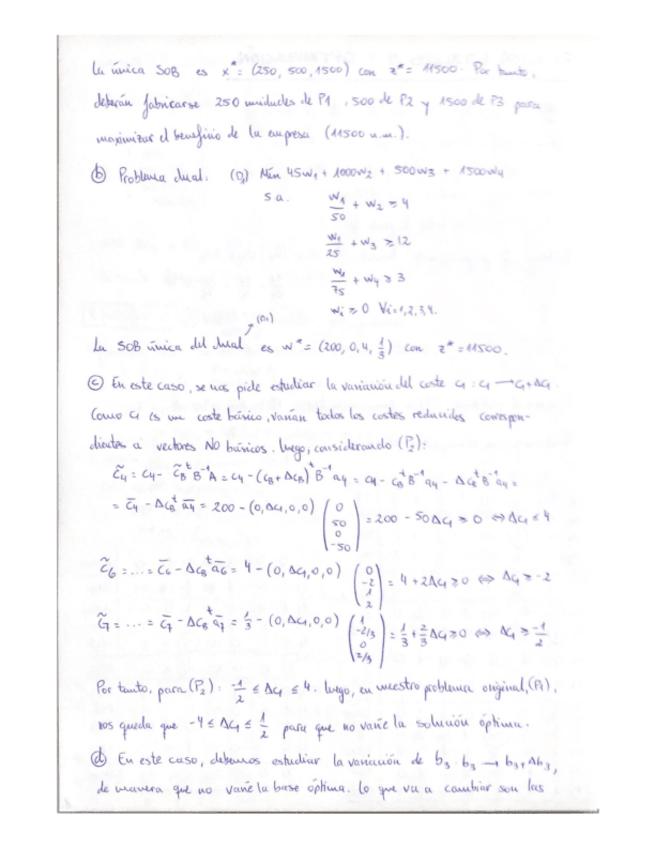 La única SOB es x* = (250, 500, 1500) con z* = 11500. Por tanto,
deberán fabricarse 250 unidades de P1, 500 de P2 y 1500 de P3 para
maximizar el beneficio de la empresa (11500 u.m.).
ⓑ Problema dual: (D₁) Min 45w₁ + 1000w₂ + 500w₃ + 1500w₄
s.a. w₁/50 + w₂ ≥ 4
w₁/25 + w₃ ≥ 12
w₁/75 + w₄ ≥ 3
wᵢ ≥ 0 ∀i=1,2,3,4.
(D₁)
La SOB única del dual es w* = (200, 0, 4, 1/3) con z* = 11500.
ⓒ En este caso, se nos pide estudiar la variación del coste c₁ : c₁ → c₁+Δc₁.
Como c₁ es un coste básico, varían todos los costes reducidos correspon-
dientes a vectores NO básicos. Luego, considerando (P₂):
c̃₄ = c₄ - c̃_Bᵗ B⁻¹A = c₄ - (c_B + Δc_B)ᵗ B⁻¹a₄ = c₄ - c_Bᵗ B⁻¹a₄ - Δc_Bᵗ B⁻¹a₄ =
= c̄₄ - Δc_Bᵗ ā₄ = 200 - (0, Δc₁, 0, 0) (0 50 0 -50) = 200 - 50Δc₁ ≥ 0 ⇔ Δc₁ ≤ 4
c̃₆ = ... = c̄₆ - Δc_Bᵗ ā₆ = 4 - (0, Δc₁, 0, 0) (0 -2 1 2) = 4 + 2Δc₁ ≥ 0 ⇔ Δc₁ ≥ -2
c̃₇ = ... = c̄₇ - Δc_Bᵗ ā₇ = 1/3 - (0, Δc₁, 0, 0) (1 -2/3 0 2/3) = 1/3 + 2/3 Δc₁ ≥ 0 ⇔ Δc₁ ≥ -1/2
Por tanto, para (P₂): -1/2 ≤ Δc₁ ≤ 4. Luego, en nuestro problema original, (P₁),
nos queda que -4 ≤ Δc₁ ≤ 1/2 para que no varíe la solución óptima.
ⓓ En este caso, debemos estudiar la variación de b₃: b₃ → b₃+Δb₃,
de manera que no varíe la base óptima. Lo que va a cambiar son las